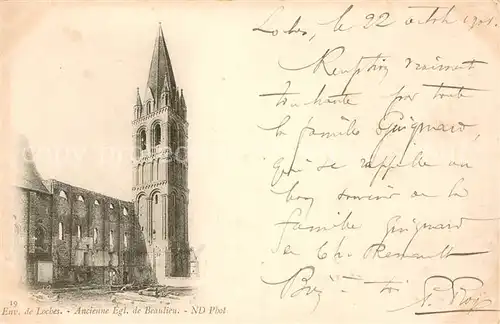 Loches, le 22 octb 1901.
Réception vraiment
touchante par toute
la famille Guignard,
qui se rappelle au
bon souvenir de la
famille Guignard
et Ch. Renault
19
Env. de Loches. - Ancienne Égl. de Beaulieu. - ND Phot